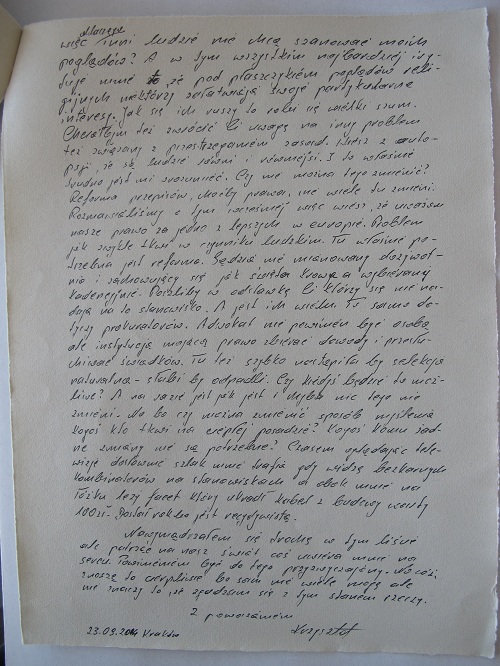 Dlaczego
więc inni ludzie nie chcą szanować moich
poglądów? A w tym wszystkim najbardziej iry-
tuje mnie to że pod płaszczykiem poglądów reli-
gijnych niektórzy załatwiają swoje partykularne
interesy. Jak się ich ruszy to robi się wielki szum.
Chciałbym też zwrócić Ci uwagę na inny problem
też związany z przestrzeganiem zasad. Wiesz z auto-
psji, że są ludzie równi i równiejsi. I to właśnie
trudno jest mi zrozumieć. Czy nie można tego zmienić?
Reforma przepisów, choćby prawa, nie wiele tu zmieni.
Rozmawialiśmy o tym wcześniej więc wiesz, że uważam
nasze prawo za jedno z lepszych w europie. Problem
jak zwykle tkwi w czynniku ludzkim. Tu właśnie po-
trzebna jest reforma. Sędzia nie mianowany dożywot-
nio i zachowujący się jak święta krowa a wybierany
kadencyjnie. Poszliby w odstawkę Ci którzy się nie na-
dają na to stanowisko. A jest ich wielu. To samo do-
tyczy prokuratorów. Adwokat nie powinien być osobą
ale instytucją mającą prawo zbierać dowody i przesłu-
chiwać świadków. Tu też szybko nastąpiła by selekcja
naturalna - słabi by odpadli. Czy kiedyś będzie to moż-
liwe? A na razie jest jak jest i chyba nic tego nie
zmieni. No bo czy można zmienić sposób myślenia
kogoś kto tkwi na ciepłej posadzie? Kogoś komu żad-
ne zmiany nie są potrzebne? Czasem oglądając tele-
wizję dosłownie szlak mnie trafia gdy widzę bezkarnych
kombinatorów na stanowiskach a obok mnie na
łóżku leży facet który ukradł kabel z budowy warty
100zł. Dostał rok bo jest recydywistą.
Nawymądrzałem się trochę w tym liście
ale patrząc na nasz świat coś uwiera mnie na
sercu. Powinienem być do tego przyzwyczajony. No cóż,
znoszę to cierpliwie bo sam nie wiele mogę ale
nie znaczy to, że zgadzam się z tym stanem rzeczy.
Z poważaniem
23.09.2014 Kraków Krzysztof